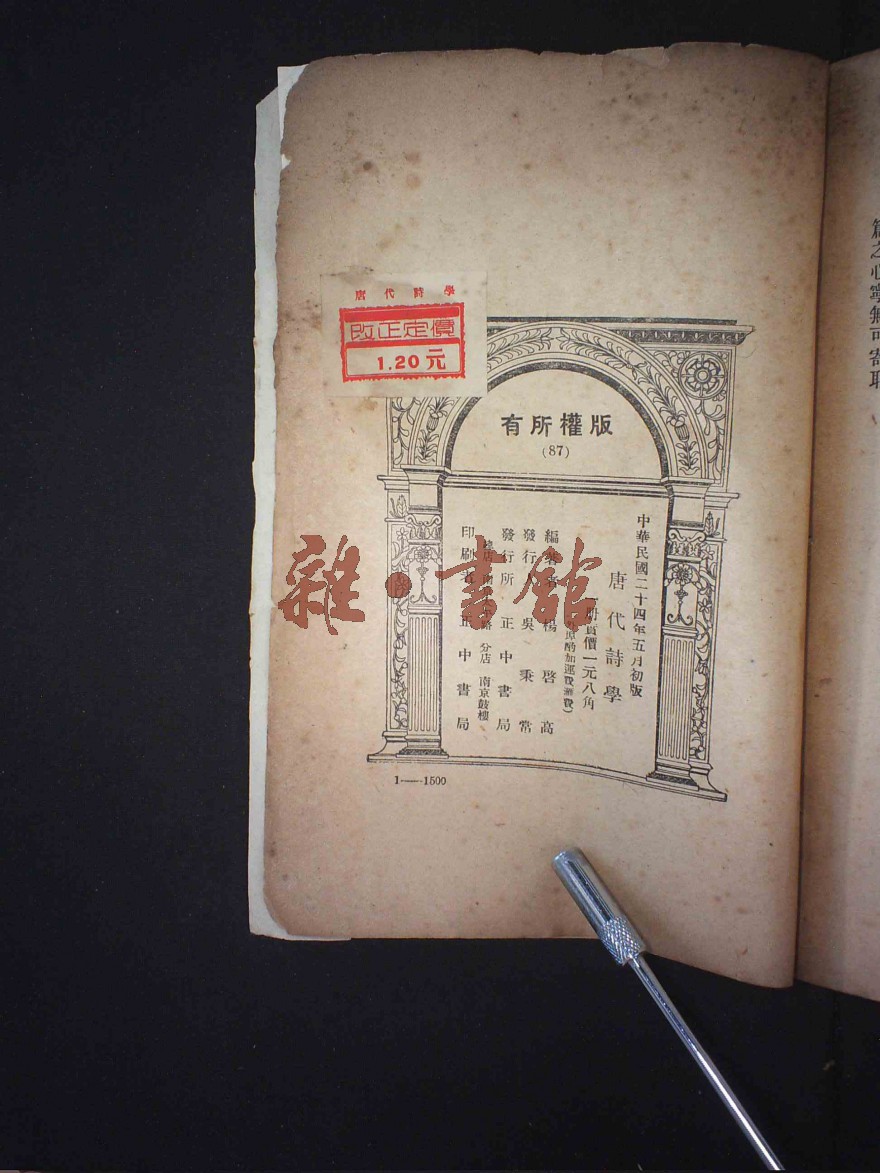 唐代詩學
改正定價
1.20元
版權所有
(87)
中華民國二十四年五月初版
唐代詩學
一册實價一元八角
加運費滙費)
編著者 楊啓高
發行人 吳秉常
發行所 正中書局
分店 南京鼓樓
印刷者 正中書局
1——1500
雜·書館
篇之心寧無可寄耶